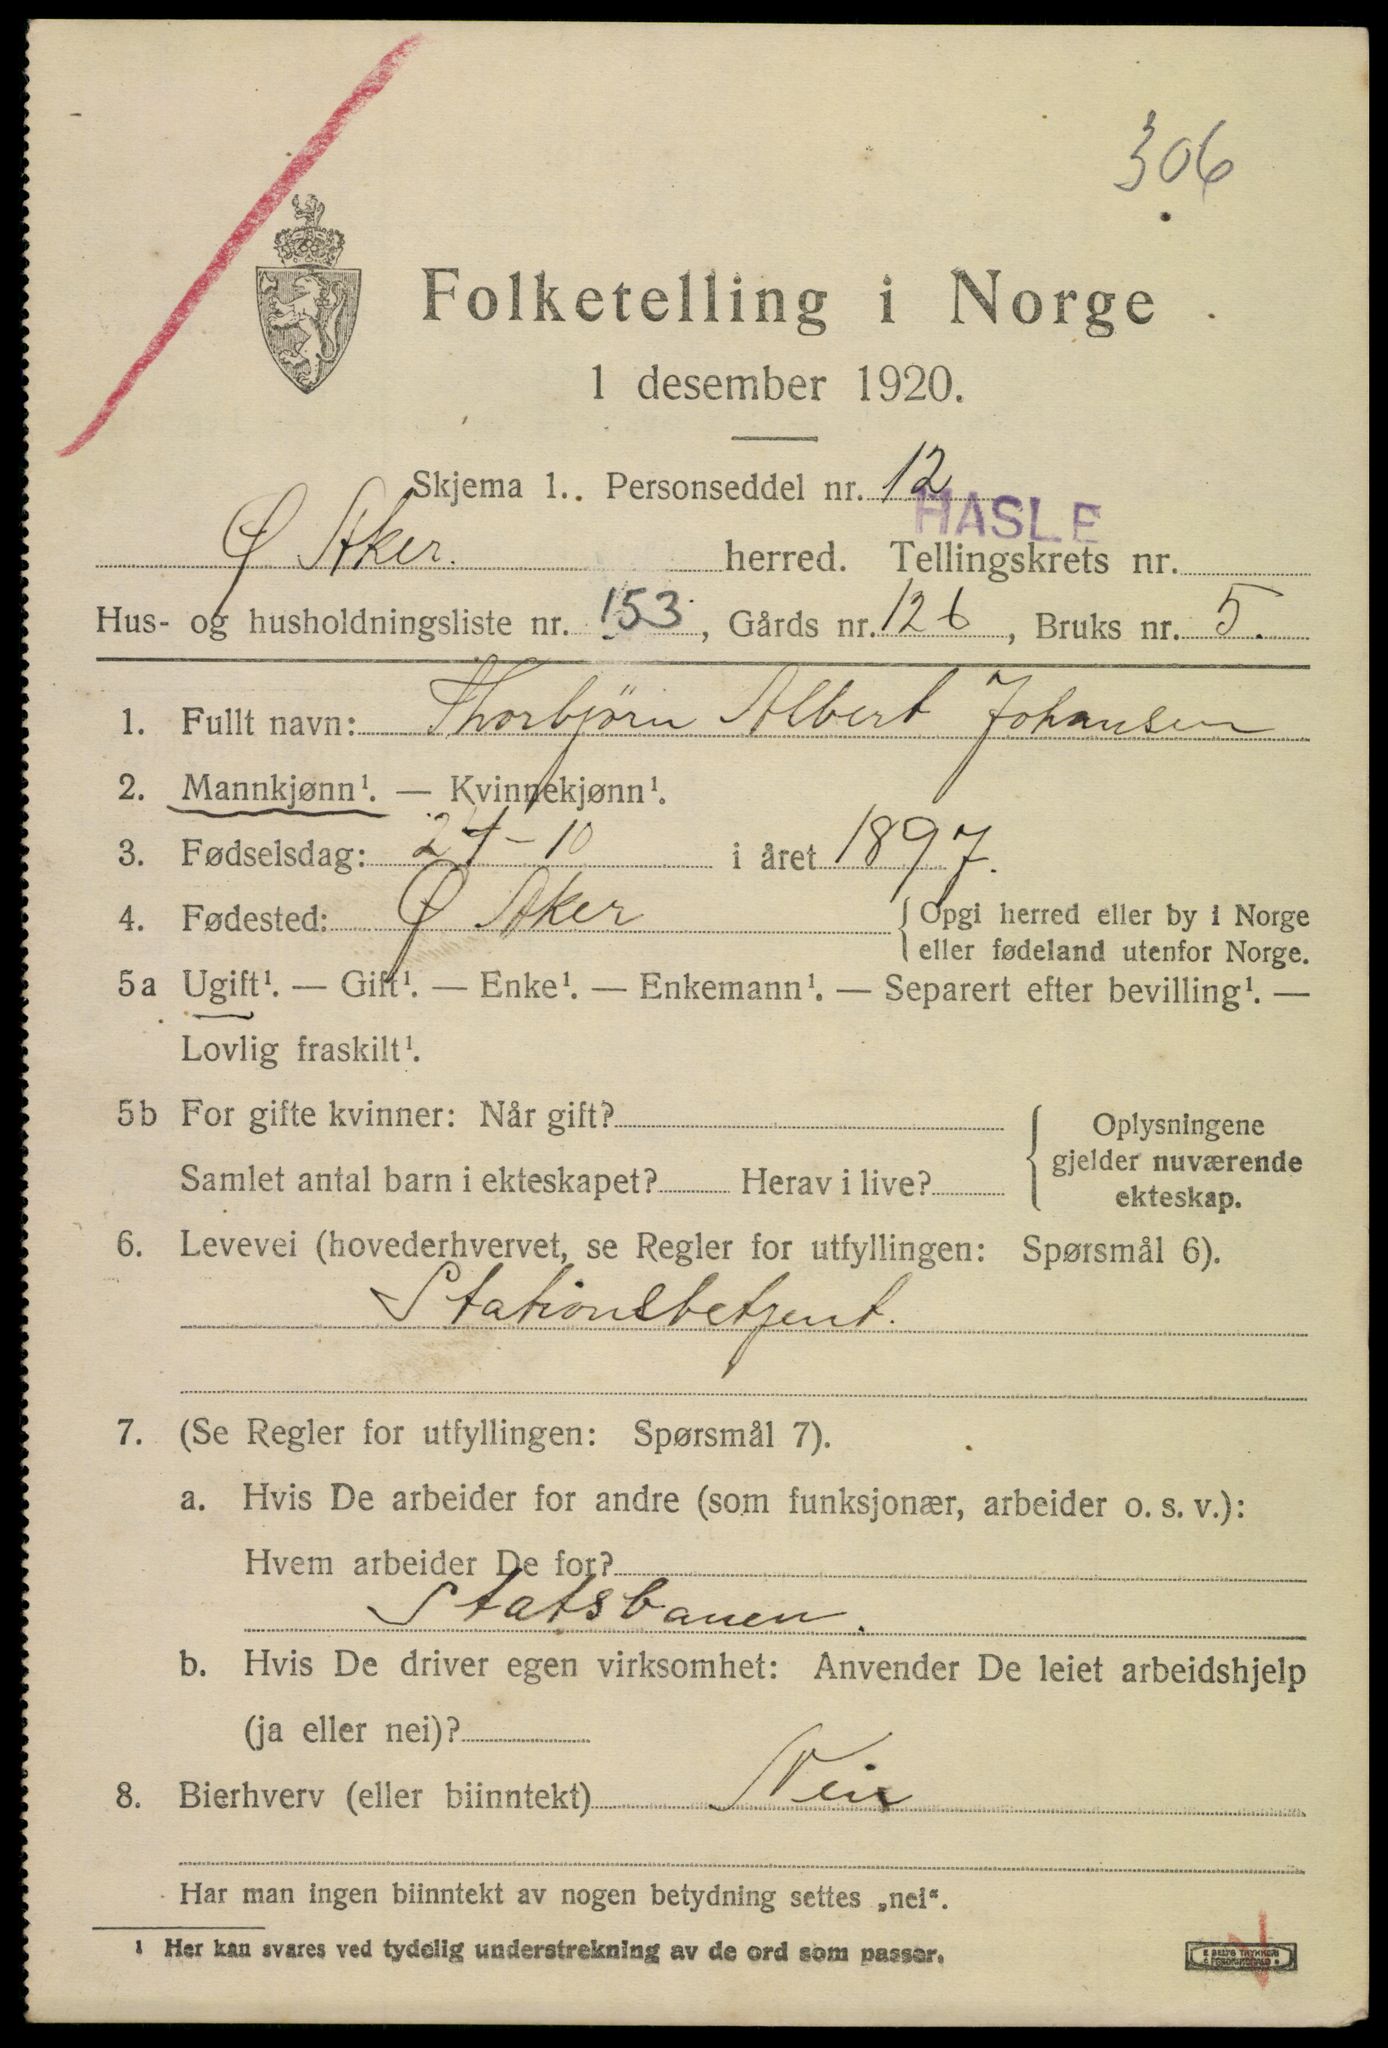 306
Folketelling i Norge
1 desember 1920.
Skjema 1. Personseddel nr. 12
HASLE
Ø Aker. herred. Tellingskrets nr.
Hus- og husholdningsliste nr. 153, Gårds nr. 126, Bruks nr. 5.
1. Fullt navn: Thorbjörn Albert Johansen
2. Mannkjønn¹. — Kvinnekjønn¹.
3. Fødselsdag: 24-10 i året 1897.
4. Fødested: Ø Aker { Opgi herred eller by i Norge
eller fødeland utenfor Norge.
5a Ugift¹. — Gift¹. — Enke¹. — Enkemann¹. — Separert efter bevilling¹. —
Lovlig fraskilt¹.
5b For gifte kvinner: Når gift? { Oplysningene
gjelder nuværende
Samlet antal barn i ekteskapet? Herav i live?
ekteskap.
6. Levevei (hovederhvervet, se Regler for utfyllingen: Spørsmål 6).
Stationsbetjent.
7. (Se Regler for utfyllingen: Spørsmål 7).
a. Hvis De arbeider for andre (som funksjonær, arbeider o. s. v.):
Hvem arbeider De for?
Statsbanen.
b. Hvis De driver egen virksomhet: Anvender De leiet arbeidshjelp
(ja eller nei)?
8. Bierhverv (eller biinntekt) Nei
Har man ingen biinntekt av nogen betydning settes „nei“.
¹ Her kan svares ved tydelig understrekning av de ord som passer.